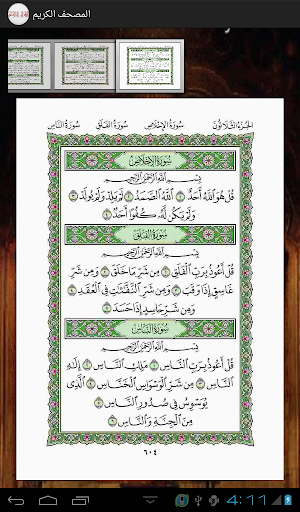 المصحف الكريم
الجزء الثلاثون سورة الإخلاص سورة الفلق سورة الناس
سُورَةُ الإِخْلَاصِ
بِسْمِ اللَّهِ الرَّحْمَٰنِ الرَّحِيمِ
قُلْ هُوَ اللَّهُ أَحَدٌ ١ اللَّهُ الصَّمَدُ ٢ لَمْ يَلِدْ وَلَمْ يُولَدْ ٣
وَلَمْ يَكُن لَّهُ كُفُوًا أَحَدٌ ٤
سُورَةُ الفَلَقِ
بِسْمِ اللَّهِ الرَّحْمَٰنِ الرَّحِيمِ
قُلْ أَعُوذُ بِرَبِّ الْفَلَقِ ١ مِن شَرِّ مَا خَلَقَ ٢ وَمِن شَرِّ
غَاسِقٍ إِذَا وَقَبَ ٣ وَمِن شَرِّ النَّفَّاثَاتِ فِي الْعُقَدِ ٤
وَمِن شَرِّ حَاسِدٍ إِذَا حَسَدَ ٥
سُورَةُ النَّاسِ
بِسْمِ اللَّهِ الرَّحْمَٰنِ الرَّحِيمِ
قُلْ أَعُوذُ بِرَبِّ النَّاسِ ١ مَلِكِ النَّاسِ ٢ إِلَٰهِ
النَّاسِ ٣ مِن شَرِّ الْوَسْوَاسِ الْخَنَّاسِ ٤ الَّذِي
يُوَسْوِسُ فِي صُدُورِ النَّاسِ ٥
مِنَ الْجِنَّةِ وَالنَّاسِ ٦
٦٠٤
4:11